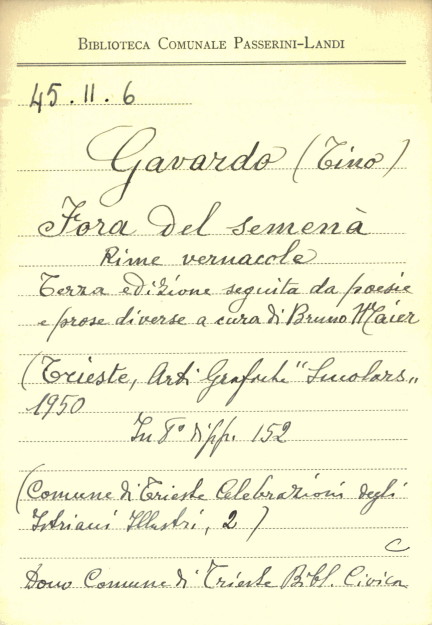 BIBLIOTECA COMUNALE PASSERINI-LANDI
45.II.6
Gavardo (Tino)
Fora del semenà
Rime vernacole
Terza edizione seguita da poesie
e prose diverse a cura di Bruno Maier
(Trieste, Arti Grafiche "Smolars"
1950
In 8° di pp. 152
(Comune di Trieste Celebrazioni degli
Istriani Illustri, 2)
C
Dono Comune di Trieste Bibl. Civica